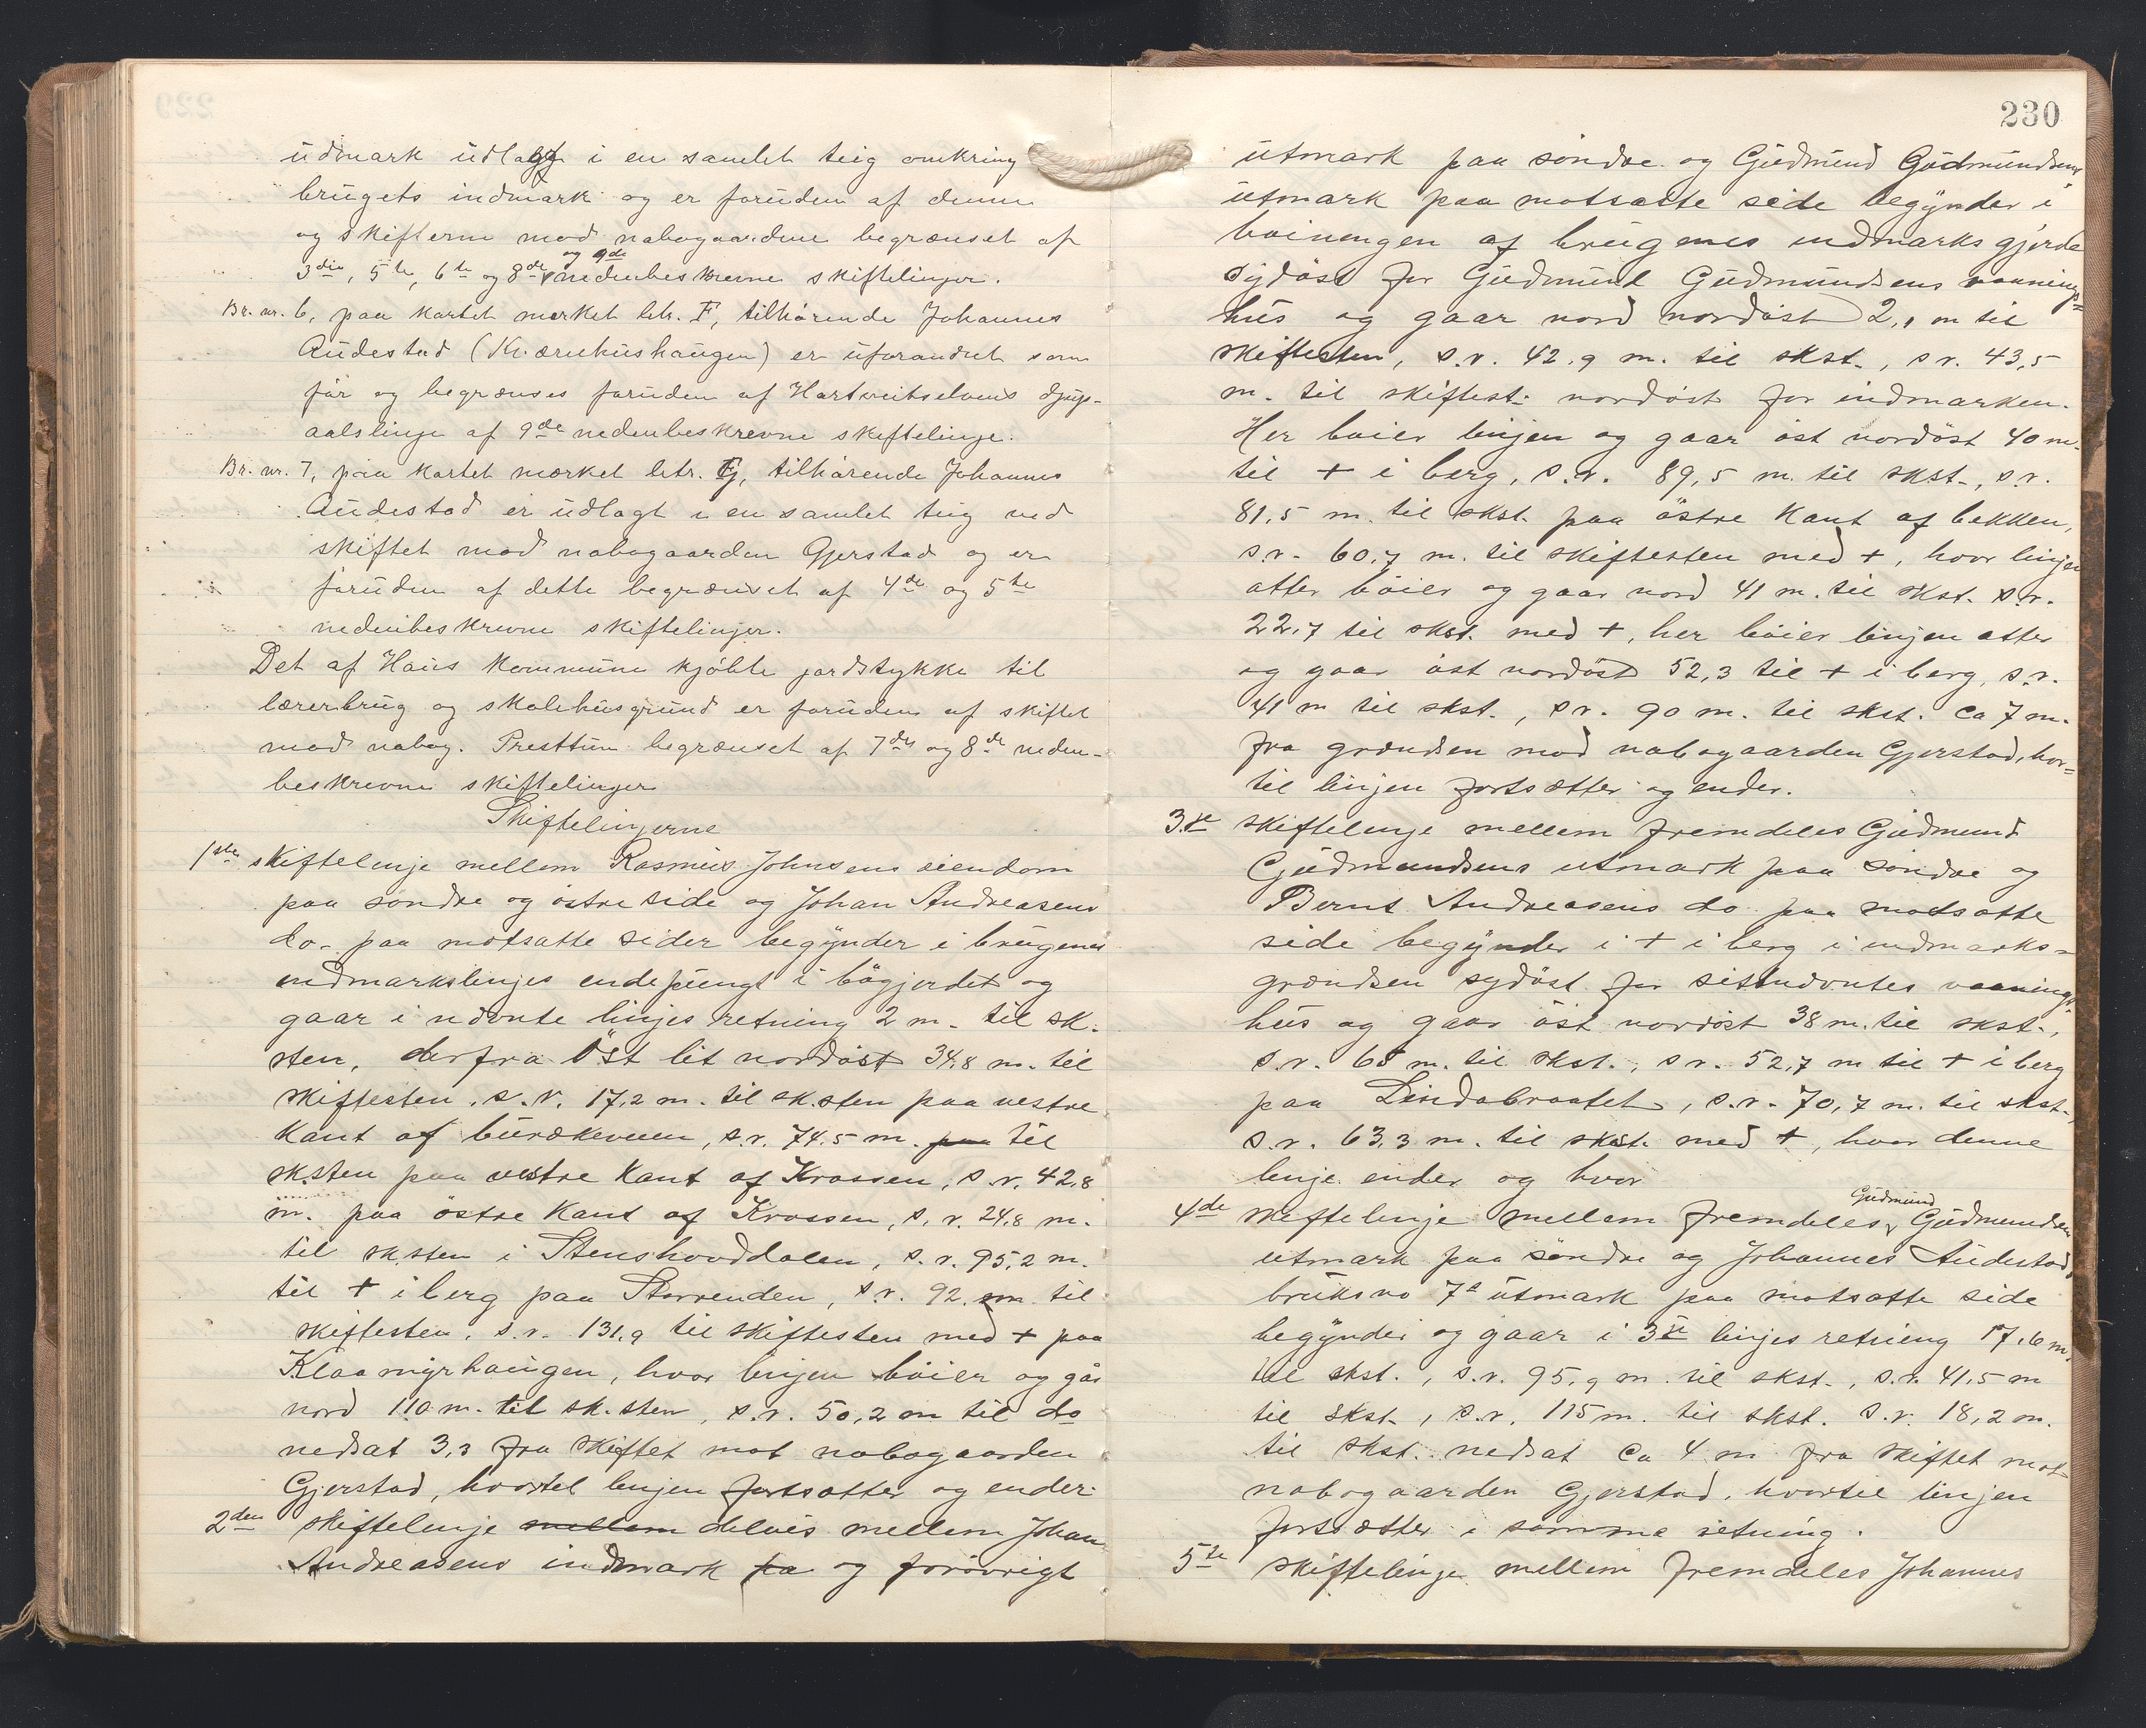 udmark udlagt i en samlet teig omkring
brugets indmark og er foruden af denne
og skifterne mod nabogaardene begrænset af
3die, 5te, 6te og 8de og 9de nedenbeskrevne skiftelinjer.
Br. nr. 6, paa kartet merket litr. F, tilhørende Johannes
Audestad (Kværnhushaugen) er uforandret som
før og begrænses foruden af Hartveitselvens djup-
aalslinje af 9de nedenbeskrevne skiftelinje.
Br. nr. 7, paa kartet mærket litr. G, tilhørende Johannes
Audestad er udlagt i en samlet teig ved
skiftet mod nabogaarden Gjerstad og er
foruden af dette begrænset af 4de og 5te
nedenbeskrevne skiftelinjer.
Det af Haus kommune kjøbte jordstykke til
lærerbrug og skolehusgrund er foruden af skiftet
mod nabog. Presttun begrænset af 7de og 8de neden-
beskrevne skiftelinjer
Skiftelinjerne
1ste skiftelinje mellem Rasmus Johnsens eiendom
paa søndre og østre side og Johan Andreasens
do- paa motsatte sider begynder i brugenes
indmarkslinjes endepungt i bøgjerdet og
gaar i nævnte linjes retning 2 m. til sk.
sten, derfra Øst lit nordøst 34,8 m. til
skiftesten, s.r. 17,2 m. til sk.sten paa vestre
kant af burækeveien, s.r. 74,5 m. paa til
sk.sten paa vestre kant af Krossen, s.r. 42,8
m. paa østre kant af Krossen, s.r. 24,8 m.
til sk.sten i Stenshovddalen, s.r. 95,2 m.
til + i berg paa Storrenden, s.r. 92 m til
skiftesten, s.r. 131,9 til skiftesten med + paa
Klaamyrhaugen, hvor linjen bøier og går
nord 110 m. til sk.sten, s.r. 50,2 m til do
nedsat 3,3 fra skiftet mot nabogaarden
Gjerstad, hvortil linjen fortsætter og ender.
2den skiftelinje mellem delvis mellem Johan
Andreasens indmark pa og forøvrigt
230
utmark paa søndre og Gudmund Gudmundsens
utmark paa motsatte side begynder i
bøiningen af brugenes indmarksgjerde
sydøst for Gudmund Gudmundsens vaanings=
hus og gaar nord nordøst 2,1 m til
skiftesten, s.r. 42,9 m. til skst., s.r. 43,5
m. til skiftest. nordøst for indmarken.
Her bøier linjen og gaar øst nordøst 40 m.
til + i berg, s.r. 89,5 m. til skst., s.r.
81,5 m. til skst. paa østre kant af bekken,
s.r. 60,7 m. til skiftesten med +, hvor linjen
atter bøier og gaar nord 41 m. til skst. s.r.
22,7 til skst. med +, her bøier linjen atter
og gaar øst nordøst 52,3 til + i berg, s.r.
41 m til skst., s.r. 90 m. til skst. ca 7 m.
fra grændsen mod nabogaarden Gjerstad, hvor=
til linjen fortsætter og ender.
3je skiftelinje mellem fremdeles Gudmund
Gudmundsens utmark paa søndre og
Bernt Andreasens do paa motsatte
side begynder i + i berg i indmarks-
grændsen sydøst for sistnævntes vaanings
hus og gaar øst nordøst 38 m. til skst.,
s.r. 65 m. til skst., s.r. 52,7 m til + i berg
paa Lindabraatet, s.r. 70,7 m. til skst.,
s.r. 63,3 m. til skst. med +, hvor denne
linje ender og hvor
4de skiftelinje mellem fremdeles Gudmund Gudmundsens
utmark paa søndre og Johannes Audestad
bruksno 7s utmark paa motsatte side
begynder og gaar i 3je linjes retning 17,6 m.
til skst., s.r. 95,9 m. til skst., s.r. 41,5 m
til skst., s.r. 115 m. til skst. s.r. 18,2 m.
til skst. nedsat ca 4 m fra skiftet mot
nabogaarden Gjerstad, hvortil linjen
fortsætter i samme retning.
5te skiftelinje mellem fremdeles Johannes